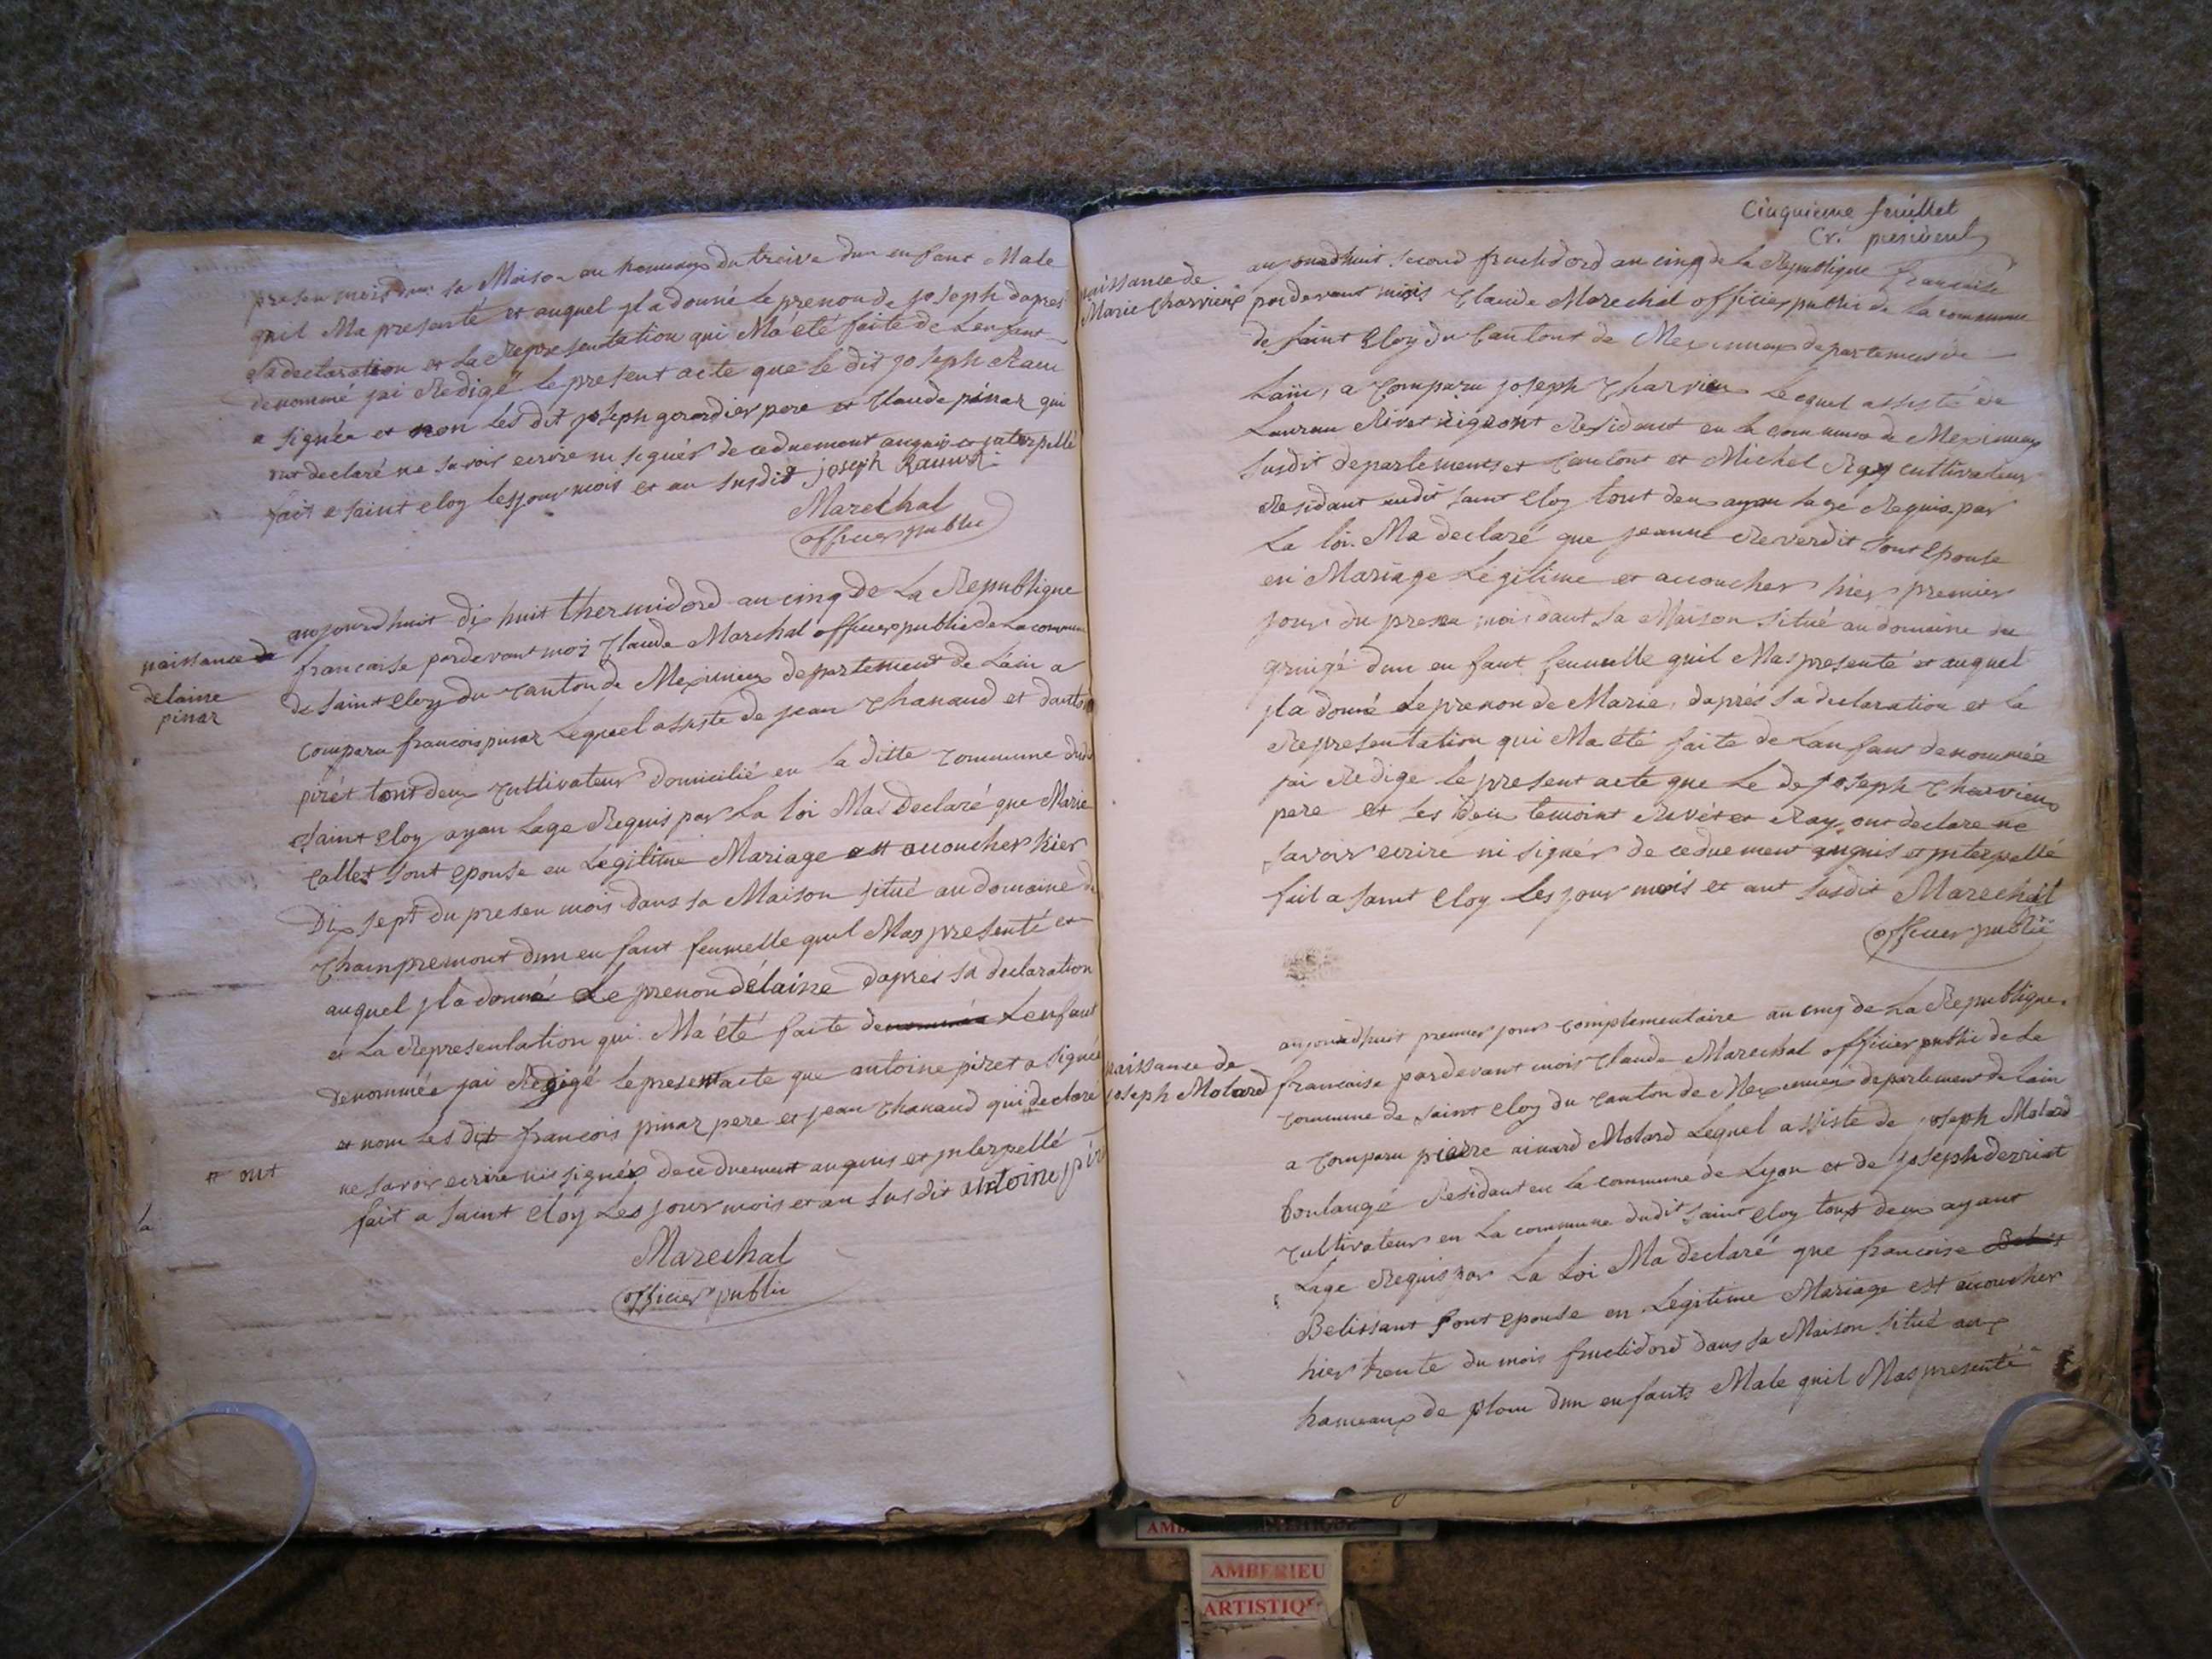 presen mois dans sa Maison au hameaux du treive dun enfant Male
quil Ma presenté et auquel yl a donné le prenon de joseph dapres
sa declaration et La Representation qui Ma été faite de Lenfant
denommé jai Redigé le present acte que le dit joseph Raux
a signée et non Les dit joseph gerardier pere et Claude pinar qui
ont declaré ne savoir ecrire ni signér de ceduement anquis et interpellé
fait a saint eloy les jour mois et an susdit joseph Raux
Marechal
officier public
naissance de
delaine
pinar
aujourdhuit dix huit thermidord an cinq de La Republique
francaise pardevant mois Claude Marchal officier public de La commune
de saint eloy du Canton de Meximieux departement de Lain a
comparu francois pinar Lequel assisté de jean Chanaud et dantoin
pirét tout deux Cultivateur domicilié en la ditte Commune dudit
saint eloy ayan Lage Requis par La loi Ma Declaré que Marie
Callet sont epouse en Legitime Mariage est acoucher hier
Dix sept du presen mois dans sa Maison situé au domaine de
Champremont dun enfant feumelle quil Mas presenté et
auquel yl a donné Le prenon délaine daprés sa declaration
et La Representation qui Ma été faite denommée Lenfant
denommée jai Redigé le present acte que antoine piret a signée
et nom Les dit francois pinar pere et jean Chanaud qui declaré
# ont
ne savoir ecrire nis signér de ceduement anquis et ynterpellé
la
fait a saint éloy Les jour mois et an susdit antoine piré
Marechal
officier public
Cinquieme feuillet
Cr. president
naissance de
Marie Charvieux
aujourdhuit second fructidord an cinq de la Republique francaise
pardevant mois Claude Marechal officier public de La commune
de saint Eloy du Cantont de Meximieux departement de
Lain, a Comparu joseph Charvieu Lequel assisté de
Lauran Rivet Residant en la commune de Meximieux
susdit departement et Cantont et Michel Ray cultivateur
Residant audit saint Eloy tout deux ayan lage Requis par
La loi. Ma declaré que jeanne Reverdit sont Epouse
en Mariage Légitime et acoucher hier premier
jour du presen mois dant sa Maison situé au domaine du
dun enfant feumelle quil Mas presenté et auquel
yl a donné Le prenon de Marie, daprés sa declaration et la
Representation qui Ma été faite de Lanfant denommée
jai Redige le present acte que Le de joseph Charvieux
pere et les deux temoint Rivét et Ray ont declare ne
savoir ecrire ni signér de ceduement anquis et ynterpellé
fait a saint Eloy Les jour mois et ant susdit Marechal
officier public
naissance de
joseph Molard
aujourdhuit premier jour complementaire an cinq de La Republique
francaise pardevant mois Claude Marechal officier public de Le
commune de saint eloy du Canton de Meximieu departement de Lain
a Comparu pierre ainard Molard Lequel assisté de joseph Molard
boulangé Residant en La commune de Lyon et de joseph derriat
Cultivateur en La commune dudit saint Eloy tout deux ayant
Lage Requis par La Loi Ma declaré que francoise
Belissant sont epouse en Legitime Mariage est acoucher
hier trente du mois fructidord dans sa Maison situé aux
hameaux de plom dun enfants Male quil Mas presenté
AMBERIEU
ARTISTIQUE